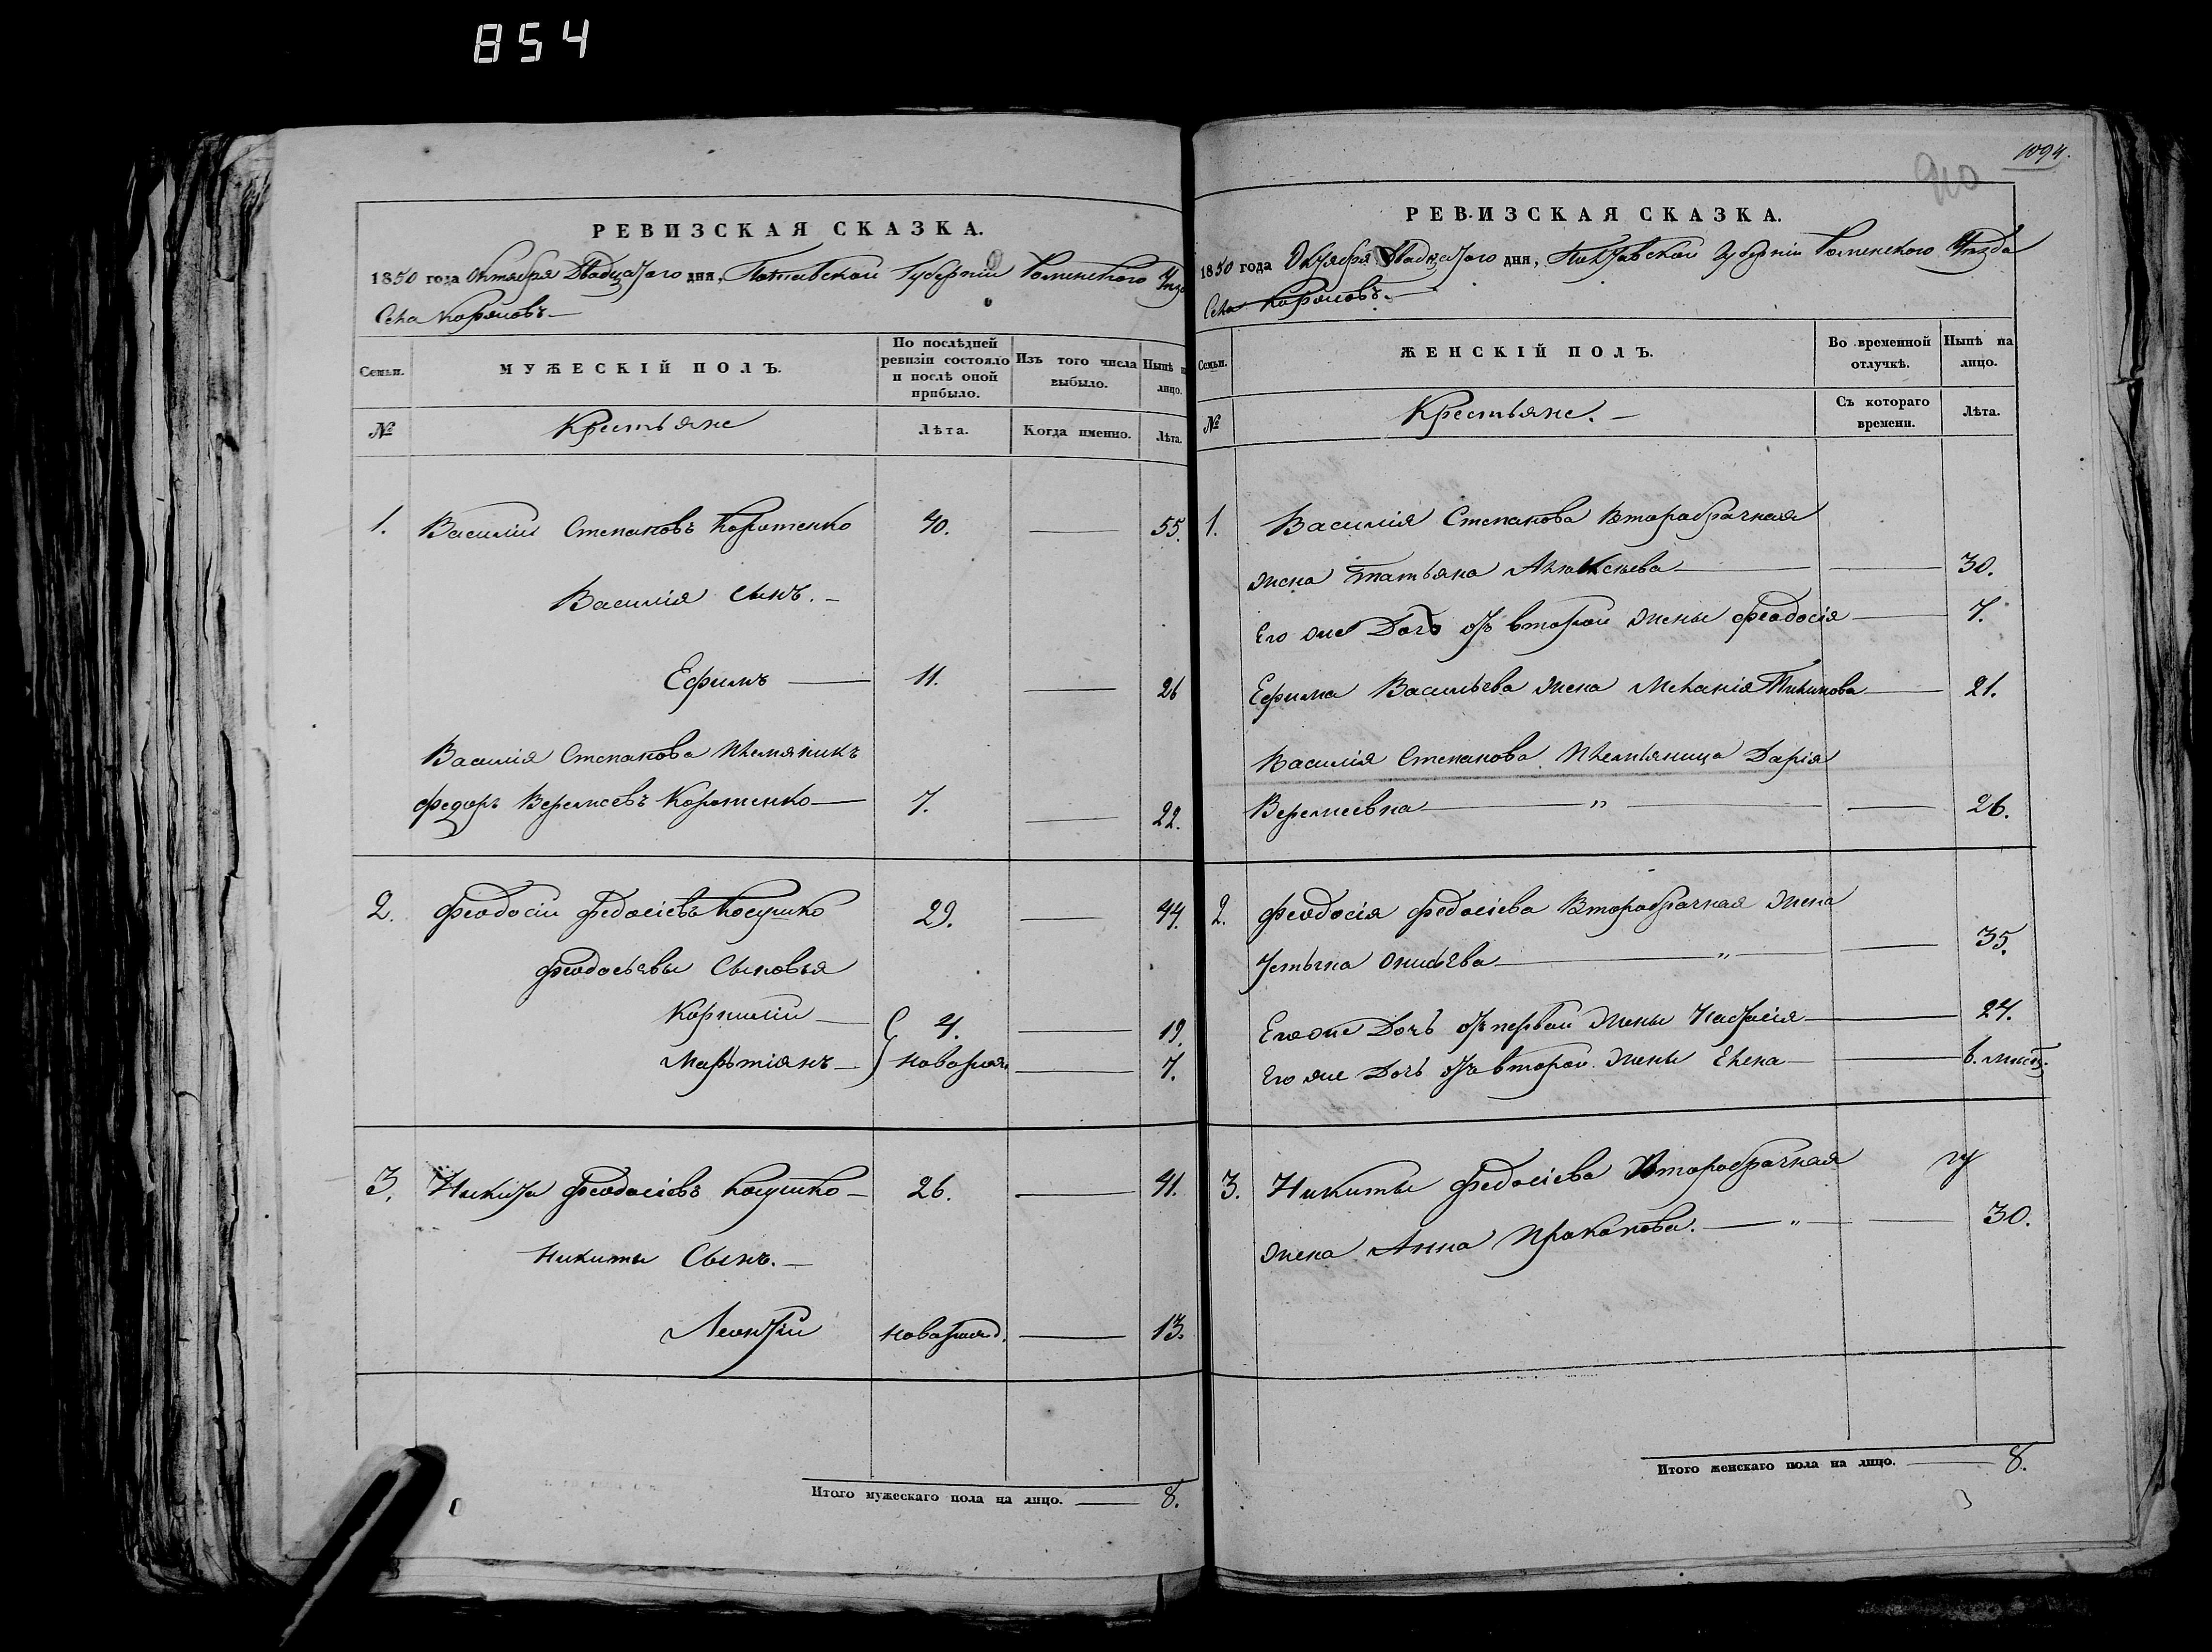 854
РЕВИЗСКАЯ СКАЗКА.
1850 года Октября Двадцатого дня, Полтавской Губерніи Роменского Уезд
Села
Семьи.
МУЖЕСКІЙ ПОЛЪ.
По послѣдней ревизіи состояло и послѣ оной прибыло.
Изъ того числа выбыло.
Нынѣ н лицо.
№
Крестьяне
Лѣта.
Когда именно.
Лѣта.
1. Василій Степановъ Коротенко 40. — 55.
Василія сынъ. —
Ефимъ — 11. — 26
Василія Степанова племяникъ
Федоръ Веремеевъ Коротенко — 7. — 22.
2. Феодосій Федосіевъ Косушко 29. — 44.
Феодосьевы Сыновья
Корнилій — 4. — 19.
Мартіянъ — новорож — 7.
3. Никита Феодосіевъ Косушко — 26. — 41.
Никиты Сынъ. —
Леонтій новорожд. — 13.
Итого мужескаго пола на лицо. — 8.
1094.
910
РЕВИЗСКАЯ СКАЗКА.
1850 года Октября Двадцатого дня, Полтавской Губерніи Роменского Уезда
Села
Семьи.
ЖЕНСКІЙ ПОЛЪ.
Во временной отлучкѣ.
Нынѣ на лицо.
№
Крестьяне. —
Съ котораго времени.
Лѣта.
1. Василія Степанова Второбрачная
жена Татьяна Алексѣева — — 30.
Его же Дочь отъ второй жены Феодосія — 7.
Ефима Васильева жена Меланія — 21.
Василія Степанова племяница Дарія
Веремеевна — " — — 26.
2. Феодосія Федосіева Второбрачная жена
Устина — " — — 35.
Его же Дочь отъ первой жены Настасія — 24.
Его же Дочь отъ второй жены Елена — — 6. мѣсяц.
3. Никиты Федосіева Второбрачная
жена Анна Прокопова. — " — — 30.
Итого женскаго пола на лицо. — 8.